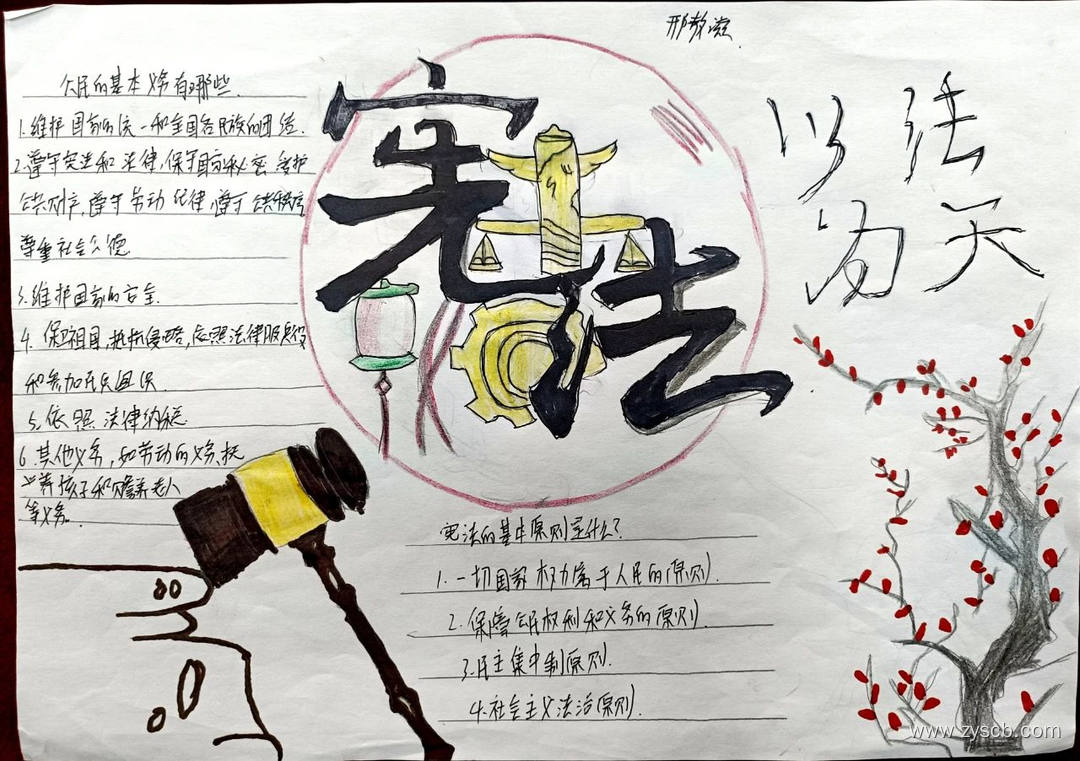 邢教
宪法
以法
为天
公民的基本义务有哪些.
1.维护国家的统一和全国各民族的团结.
2.遵守宪法和法律,保守国家秘密,爱护
公共财产,遵守劳动纪律,遵守公共秩序
尊重社会公德
3.维护国家的安全.
4.保卫祖国,抵抗侵略,依照法律服兵役
和参加民兵组织.
5.依照法律纳税
6.其他义务,如劳动的义务,抚
养孩子和赡养老人
等义务.
宪法的基本原则是什么?
1.一切国家权力属于人民的原则.
2.保障公民权利和义务的原则.
3.民主集中制原则.
4.社会主义法治原则.
www.zyscb.com